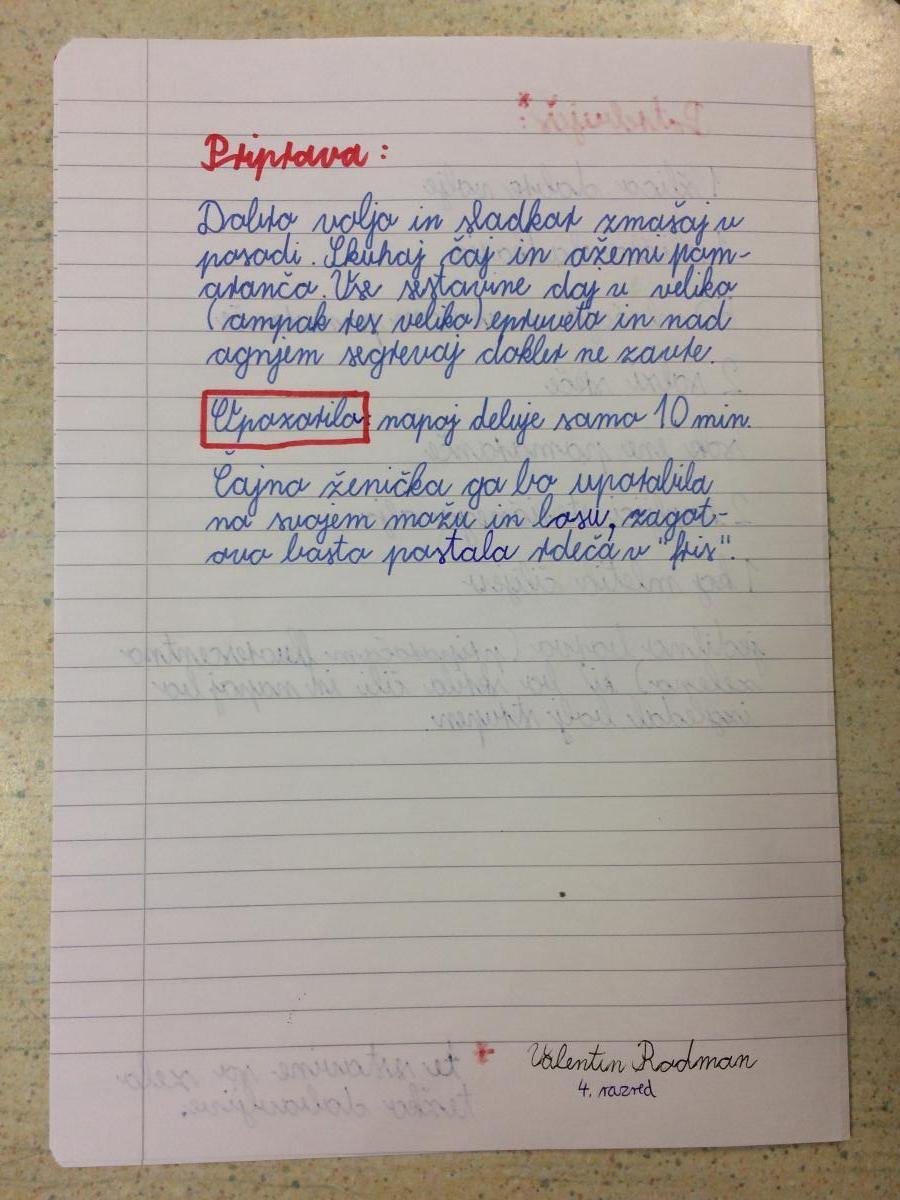 Priprava:
Dobro voljo in sladkor zmešaj v
posodi. Skuhaj čaj in ožemi pom-
arančo. Vse sestavine daj v veliko
(ampak res veliko) epruveto in nad
ognjem segrevaj dokler ne zavre.
Opozorilo: napoj deluje samo 10 min.
Čajna ženička ga bo uporabila
na svojem možu in bosu, zagot-
ovo bosta postala rdeča v "fris".
Valentin Radman
4. razred